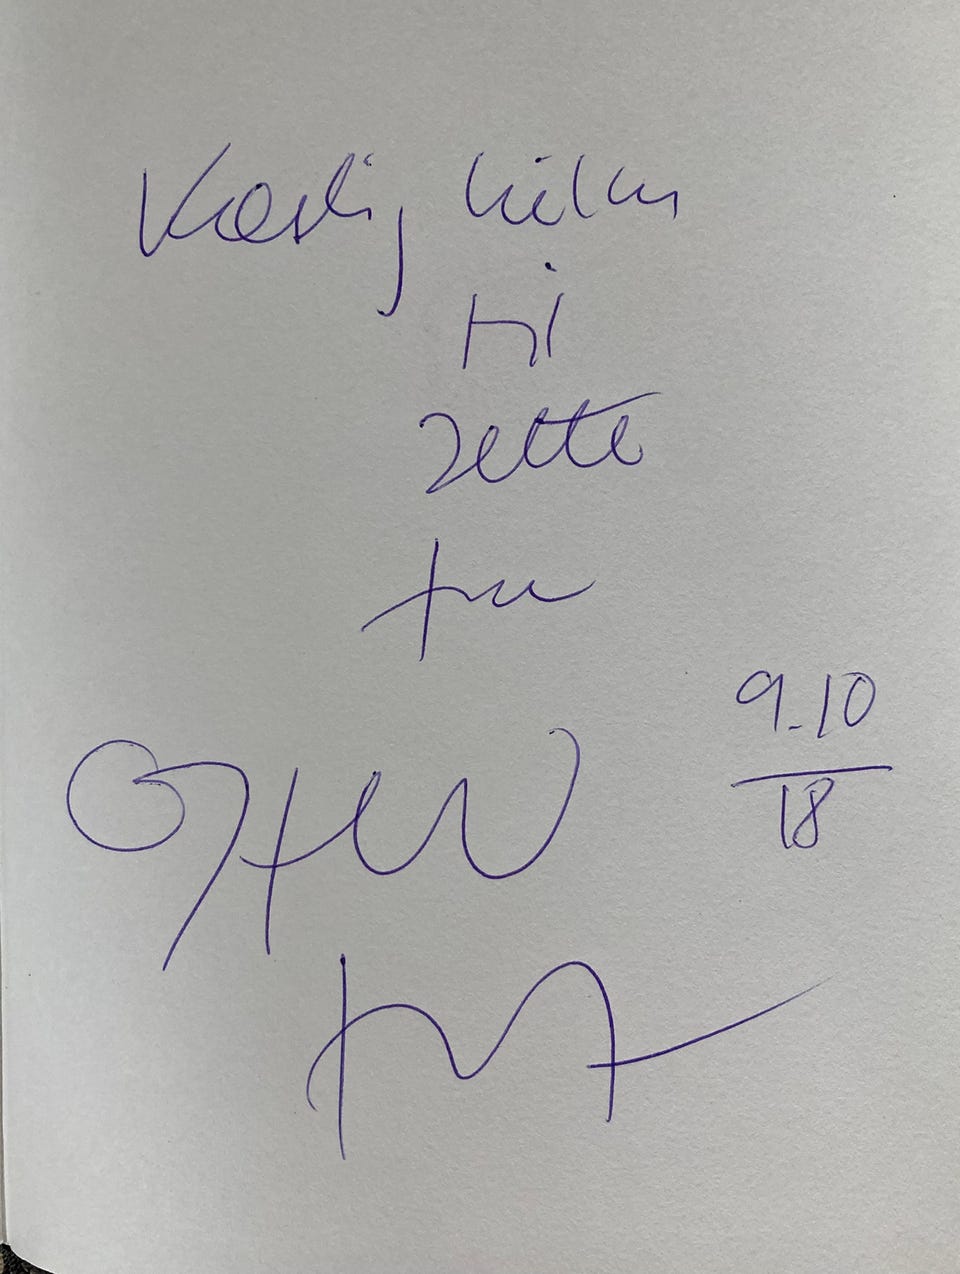 Kærlig hilsen
til
Jette
fra
9.10
18